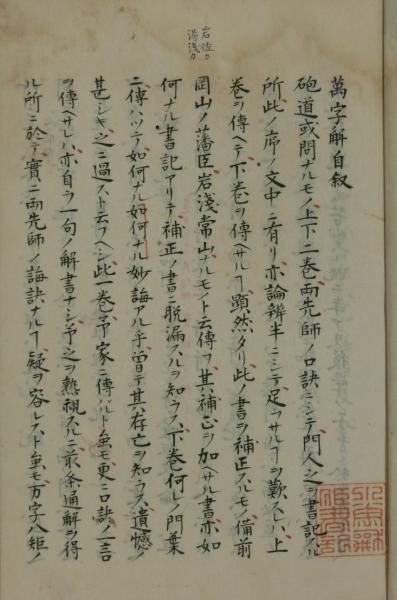 岩佐カ
湯浅カ
萬字解自叙
砲道或問ナルモノ上下二巻両先師ノ口訣ニシテ門人之ヲ書記スル
所此ノ序ノ文中ニ有リ亦論辨半ニシテ足ラサルヿヲ歎スレハ上
巻ヲ傳ヘテ下巻ヲ傳ヘサルヿ顕然タリ此ノ書ヲ補正スルモノ備前
岡山ノ藩臣岩浅常山ナルモノト云傳フ其補正ヲ加ヘサル書亦如
何ナル書記アリテ補正ノ書ニ脱漏スルヲ知ラス下巻何レノ門葉
ニ傳ハツテ如何ナル如何ナル妙誨アル乎曽テ其存亡ヲ知ラス遺憾ノ
甚シキ之ニ過スト云フヘシ此一巻予家ニ傳ハルト𪜈更ニ口訣ノ一言
ヲ傳ヘサレハ亦自ラ一句ノ解書ナシ予之ヲ熟視スルニ前条通解ヲ得
ル所ニ於テ實ニ両先師ノ誨訣ナルヿ疑ヲ容レスト𪜈万字八矩ノ